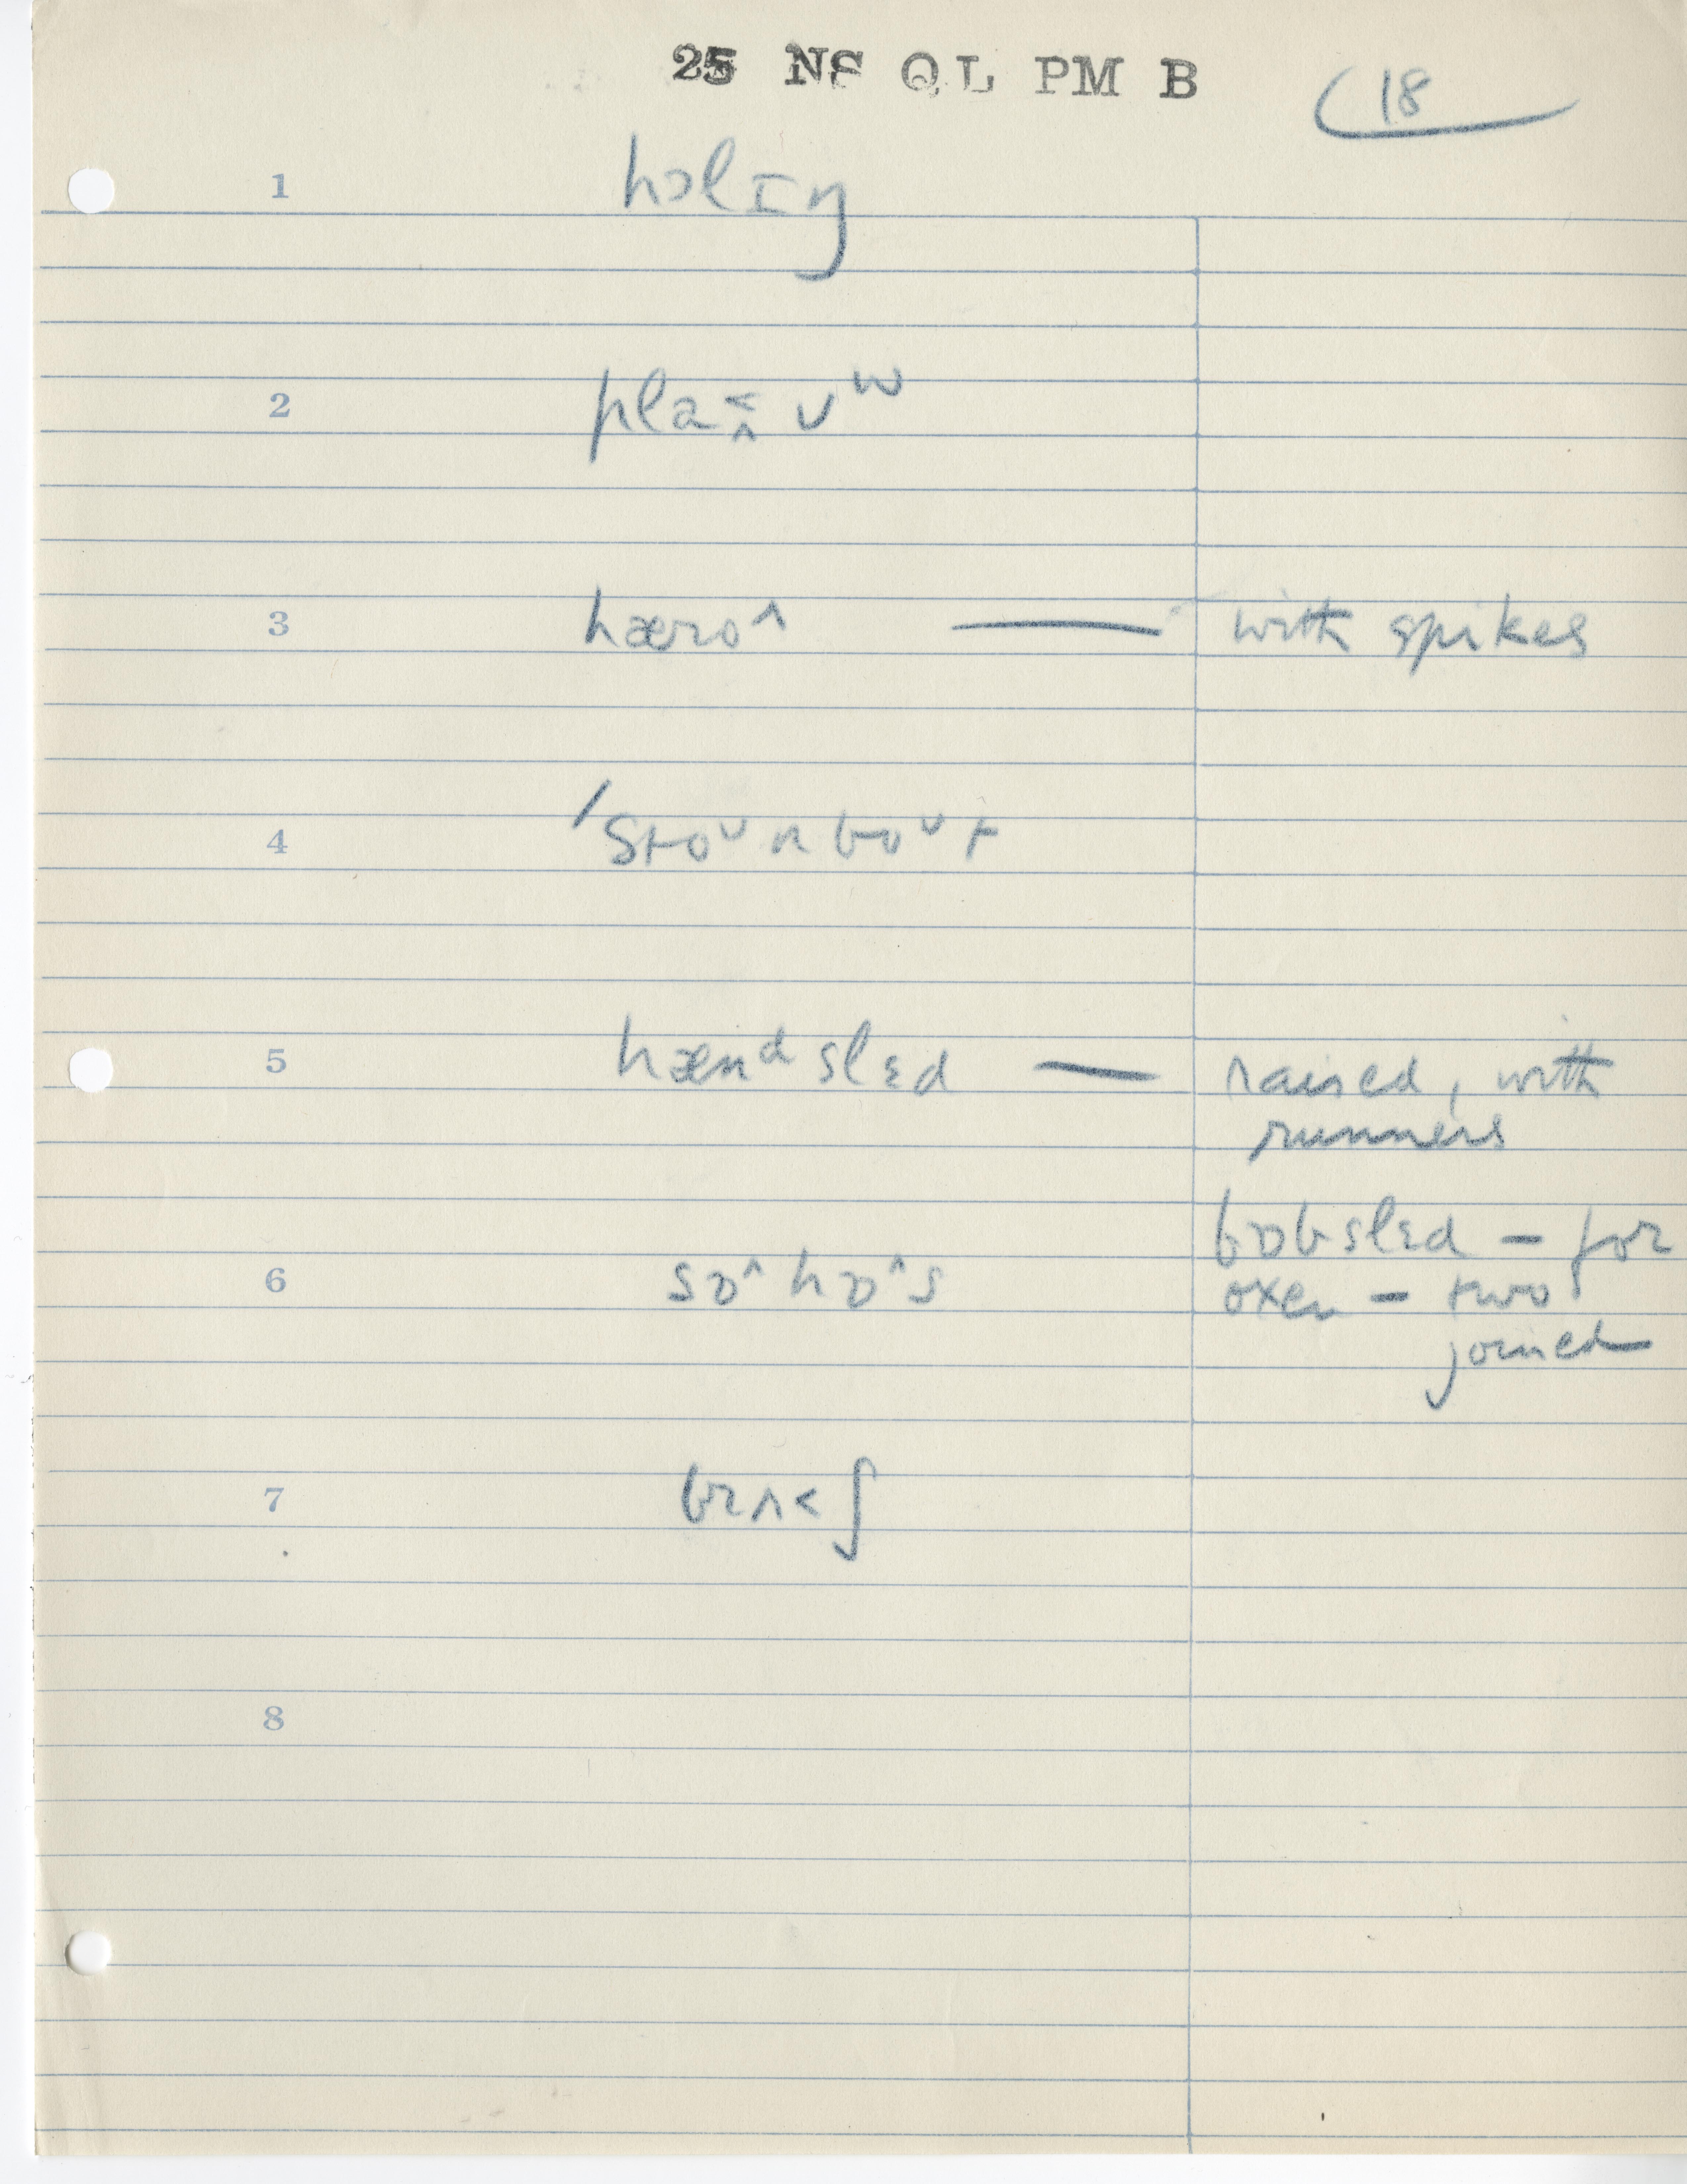 25 NS QL PM B
18
1 hɔlɪŋ
2 pla˂˰ ʊʷ
3 hæro^ — with spikes
4 ˈstoᵛnboᵛt
5 hænᵈslɛd — raised, with
runners
bɒbslɛd – for
6 sɒ^hɒ^s oxen – two
joined
7 brʌ˂ʃ
8